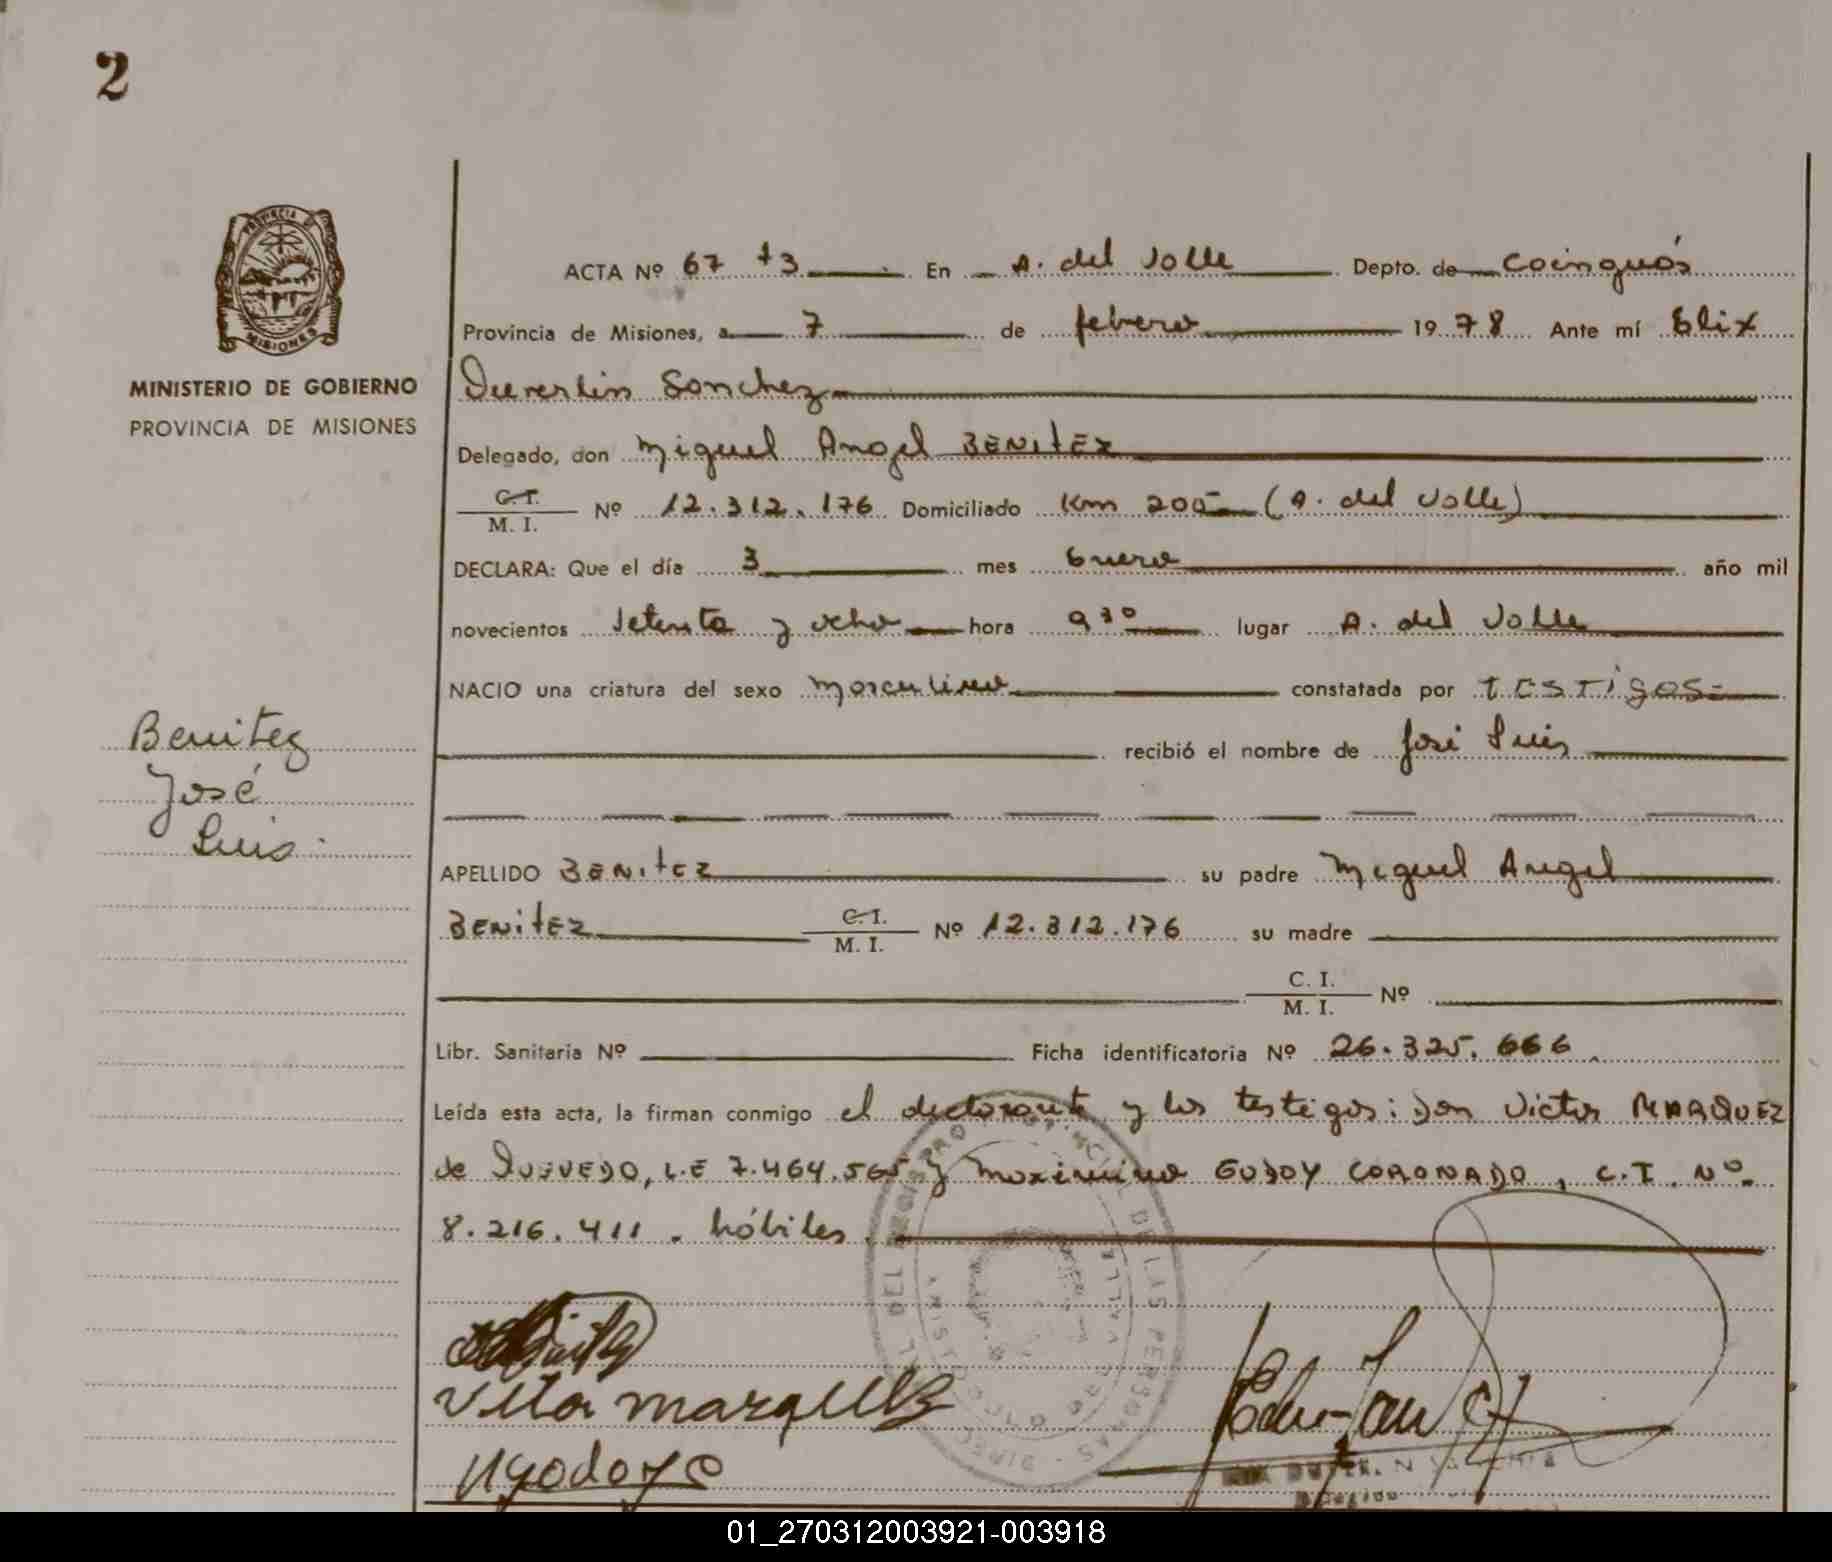 2
PROVINCIA DE
MISIONES
MINISTERIO DE GOBIERNO
PROVINCIA DE MISIONES
ACTA Nº 67 t3 En A. del Valle Depto. de Cainguás
Provincia de Misiones, a 7 de febrero 1978 Ante mí Elix
Duverlin Sanchez
Delegado, don Miguel Angel BENITEZ
C.I.
M. I. Nº 12.312.176 Domiciliado Km 205 (A. del Valle)
DECLARA: Que el día 3 mes Enero año mil
novecientos setenta y ocho hora 9 30 lugar A. del Valle
NACIO una criatura del sexo masculino constatada por TESTigos=
recibió el nombre de José Luis
Benitez
José
Luis.
APELLIDO BENitEZ su padre Miguel Angel
BENitEZ C.I.
M. I. Nº 12.312.176 su madre
C. I.
M. I. Nº
Libr. Sanitaria Nº Ficha identificatoria Nº 26.325.666.
Leída esta acta, la firman conmigo el declarante y los testigos: Don Victor MARQUEZ
de QUEVEDO, L.E 7.464.565 y Maximino GODOY CORONADO, C.I. Nº.
8.216.411. hábiles.
Vitor marquez
01_270312003921-003918